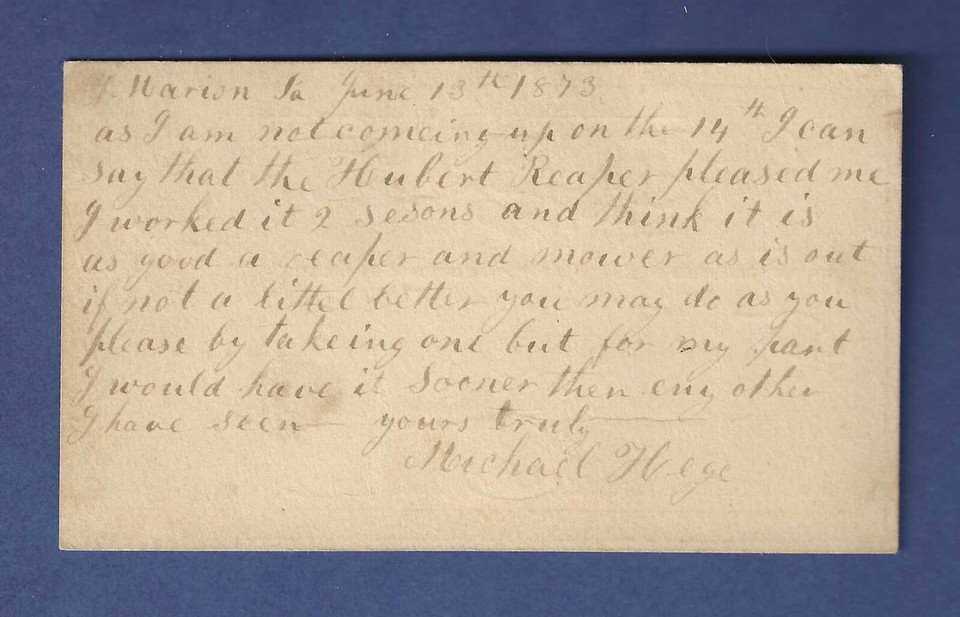 Marion Pa June 13th 1873
as I am not comeing up on the 14th I can
say that the Hubert Reaper pleased me
I worked it 2 sesons and think it is
as good a reaper and mower as is out
if not a littel better you may do as you
please by takeing one but for my part
I would have it sooner then eny other
I have seen yours truly
Michael Hege